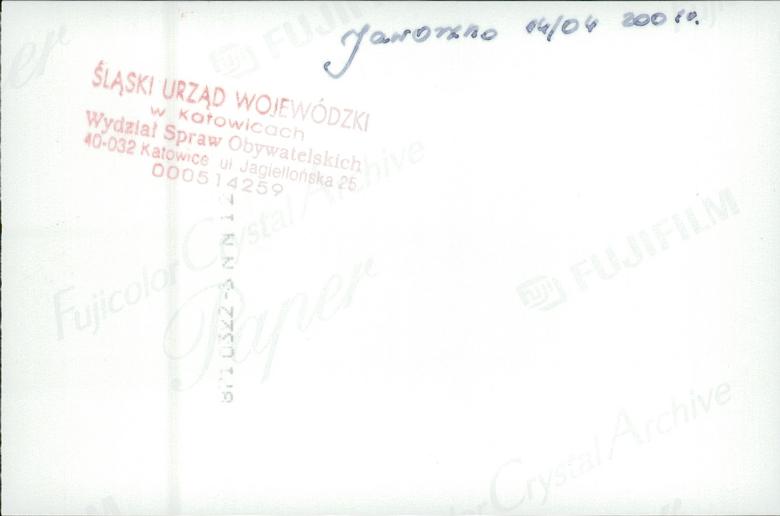 Jaworzno 14/04 2001r.
ŚLĄSKI URZĄD WOJEWÓDZKI
w Katowicach
Wydział Spraw Obywatelskich
40-032 Katowice ul Jagiellońska 25
000514259
FUJIFILM
Fujicolor Crystal Archive
Paper
FUJIFILM
Crystal Archive